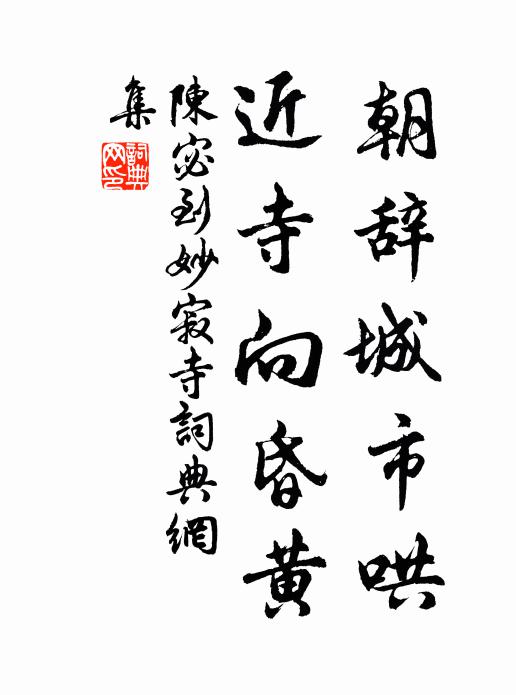 朝辞城市哄
近寺向昏黄
陳宓到妙寂寺詞典網
集
詞典網印